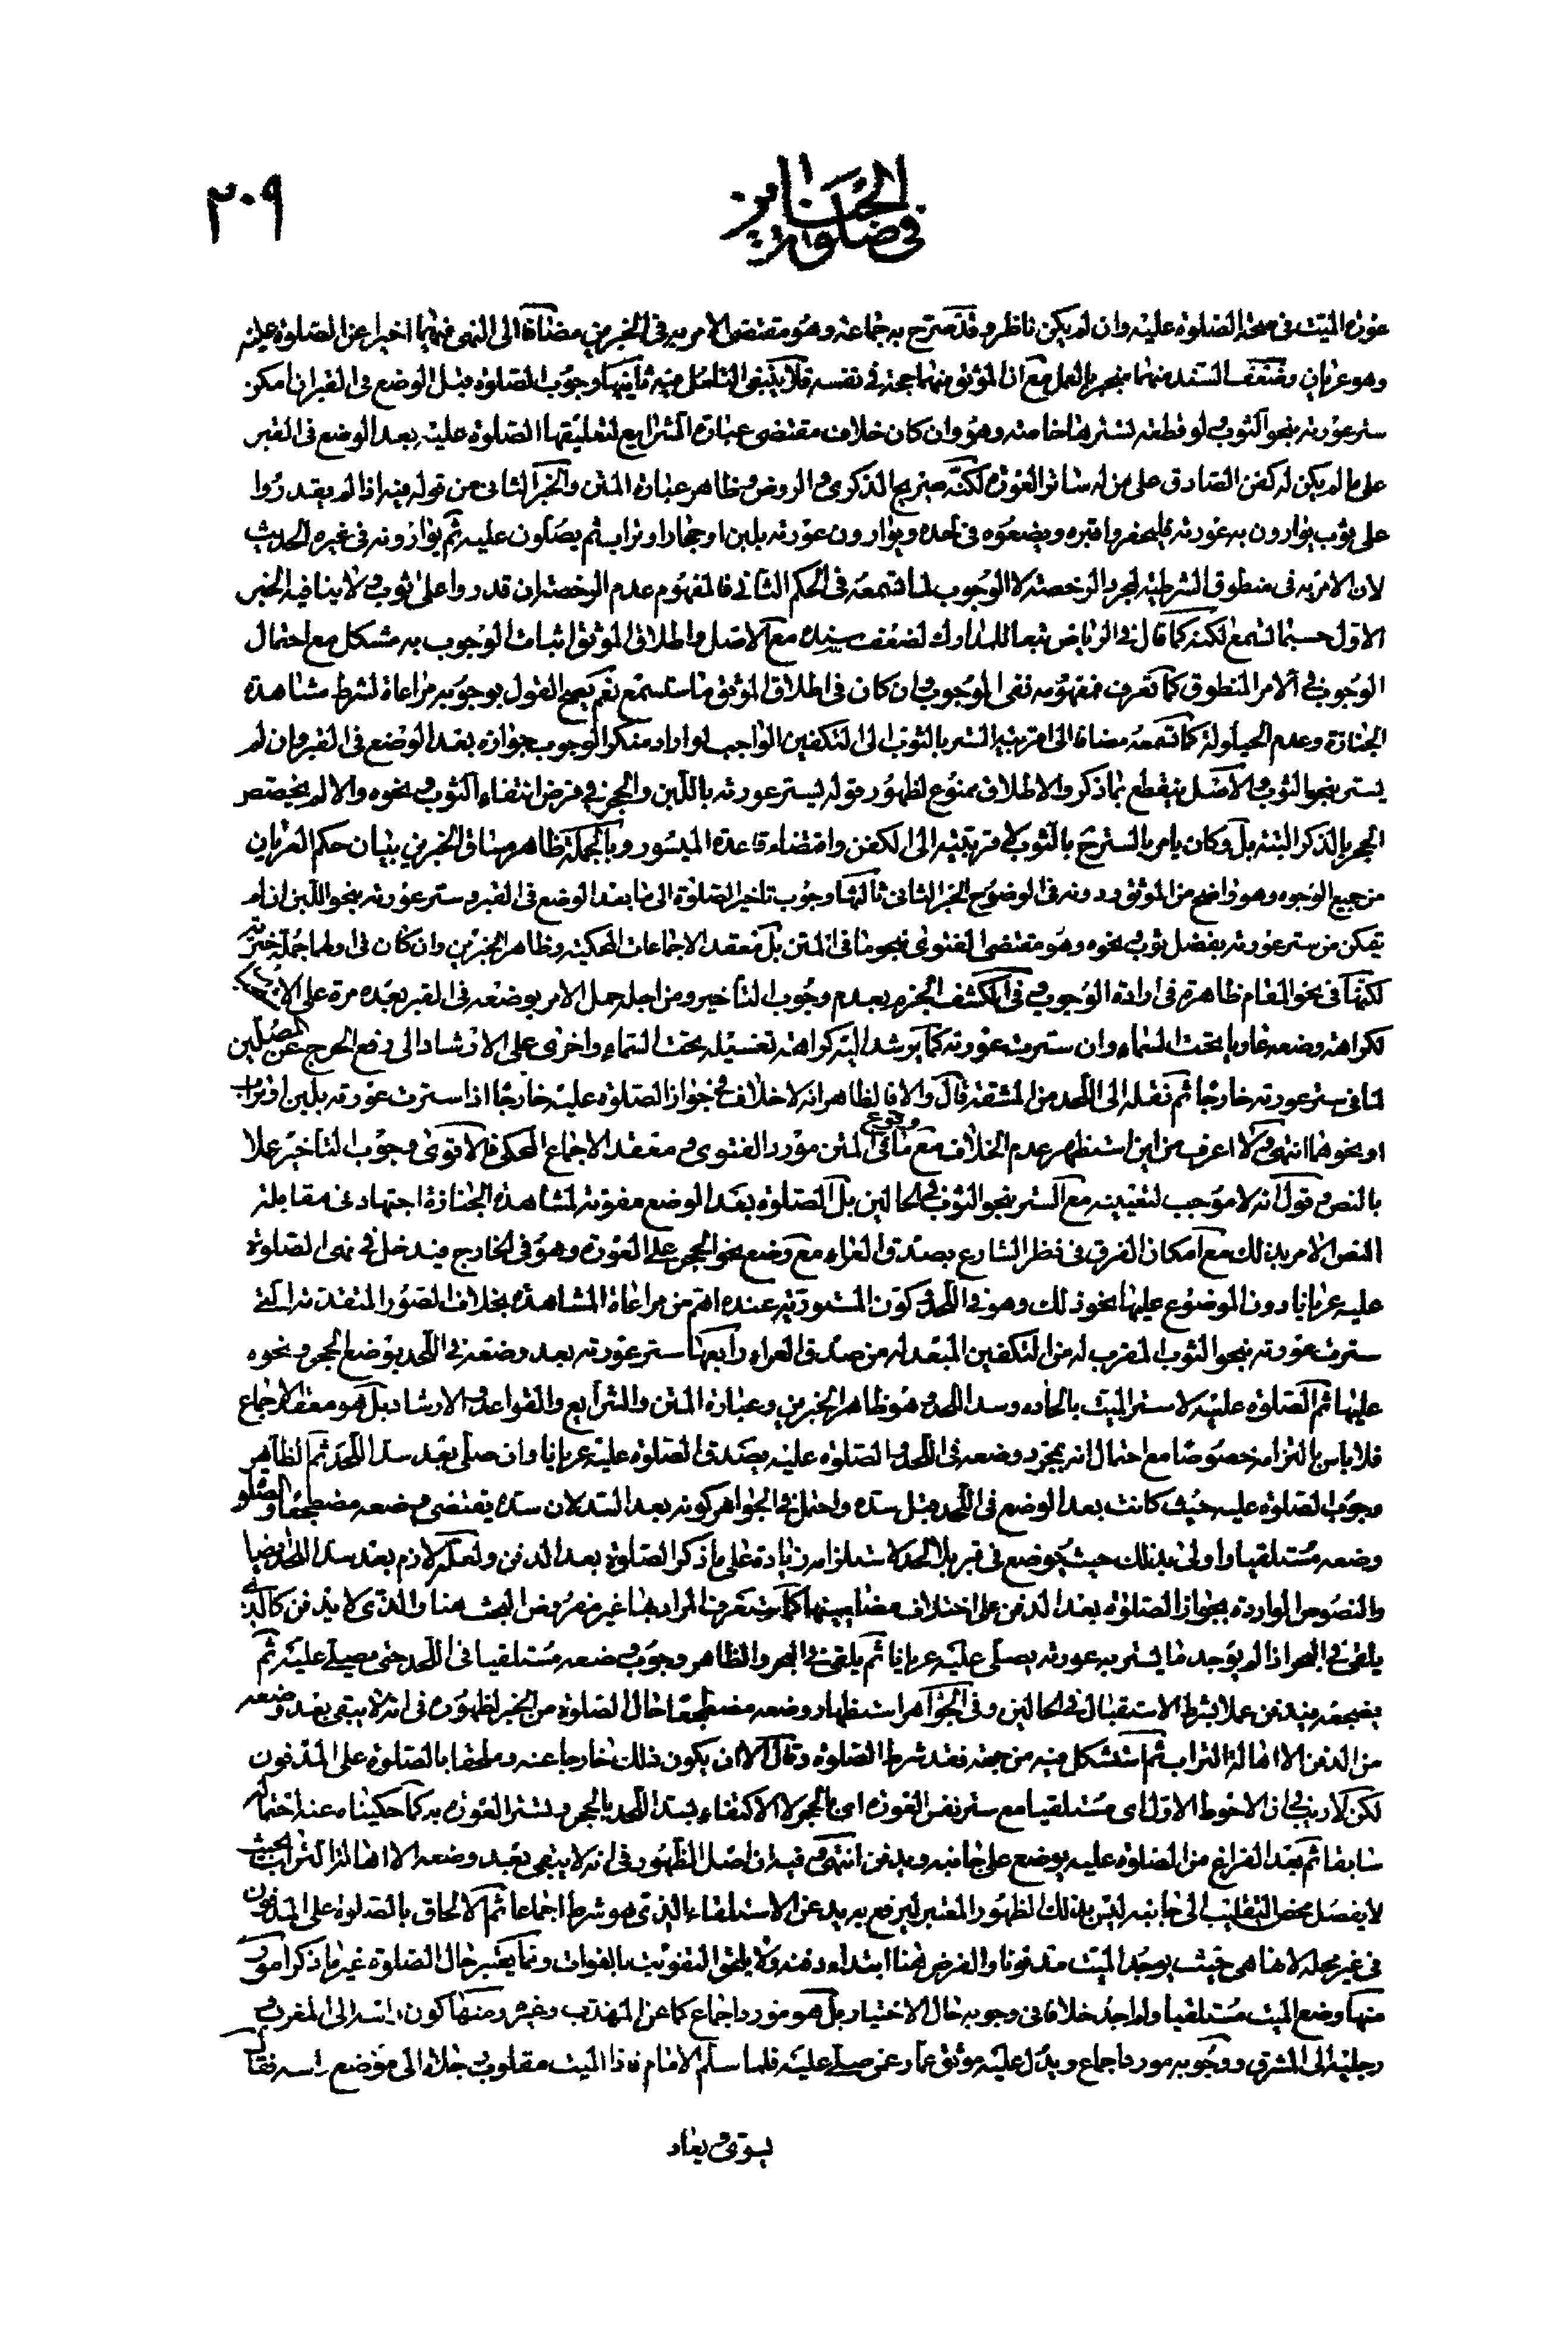 في صلوة الجنائز
٢٠٩
عورة الميت في صحة الصلوة عليه وان لم يكن ناظر وقد صرح به جماعة وهو مقتضى الامر به في الخبرين مضافا الى النهي فيهما اخيرا عن الصلوة عليه
وهو عريان وضعف السند منهما منجبر بالعمل مع ان الموثق منهما حجة في نفسه فلا ينبغي التامل فيه ثانيها وجوب الصلوة قبل الوضع في القبر ان امكن
ستر عورته بنحو الثوب ولو قطعة لسترها خاصة وهو وان كان خلاف مقتضى عبارة الشرايع لتعليقها الصلوة عليه بعد الوضع في القبر
على ما لم يكن له كفن الصادق على من له ساتر العورة لكنه صريح الذكرى والروض وظاهر عبارة المتن والخبر الثاني من قوله فيه اذا لم يقدروا
على ثوب يوارون به عورته فليحفروا قبره ويضعوه في لحده ويوارون عورته بلبن او حجار او تراب ثم يصلون عليه ثم يوارونه في غيره الحديث
لان الامر به في منطوق الشرطية لمجرد الرخصة لا الوجوب لما تسمعه في الحكم الثاني فالمفهوم عدم الرخصة ان قدروا على ثوب ولا ينافيه الخبر
الاول حسبما تسمع لكنه كما قال في الرياض تبعا للمدارك لضعف سنده مع الاصل واطلاق الموثق اثبات الوجوب به مشكل مع احتمال
الوجوب في الامر المنطوق كما تعرف فمفهومه نفى الوجوب وان كان في اطلاق الموثق ما ستسمع نعم يصح القول بوجوبه مراعاة لشرط مشاهدة
الجنازة وعدم الحيلولة كما تسمعه مضافا الى اقربية الستر بالثوب الى التكفين الواجب لو اراد منكر الوجوب جوازه بعد الوضع في القبر وان لم
يستر بنحو الثوب والاصل ينقطع بما ذكر والاطلاق ممنوع لظهور قوله ليستر عورته باللبن والحجر في فرض انتفاء الثوب ونحوه والا لم يختص
الحجر بالذكر البتة بل وكان يامر بالستر ح بالثوب لاقربيته الى الكفن واقتضاء قاعدة الميسور وبالجملة ظاهر مساق الخبرين بيان حكم العريان
من جميع الوجوه وهو واضح من الموثق ودونه في الوضوح الخبر الثاني ثالثها وجوب تاخير الصلوة الى ما بعد الوضع في القبر وستر عورته بنحو اللبن ان لم
يمكن من ستر عورته بفضل ثوب ونحوه وهو مقتضى الفتوى نحو ما في المتن بل معقد الاجماعات المحكية وظاهر الخبرين وان كان في اولهما جملة خبرية
لكنها في نحو المقام ظاهرة في ارادة الوجوب وفي الكشف الجزم بعدم وجوب التأخير ومن اجله حمل الامر بوضعه في القبر بعده مرة على
لكراهة وضعه عاريا تحت السماء وان سترت عورته كما يرشد اليه كراهة تغسيله تحت السماء واخرى على الارشاد الى رفع الحرج عن المصلين
لما في ستر عورته خارجا ثم نقله الى اللحد من المشقة قال والا فالظاهر انه لا خلاف في جواز الصلوة عليه خارجا اذا سترت عورته بلبن او تراب
او نحوهما انتهى ولا اعرف من اين استظهر عدم الخلاف مع وقوع ما في المتن مورد الفتوى ومعقد الاجماع المحكي فالاقوى وجوب التأخير عملا
بالنص وقول انه لا موجب لتعيينه مع الستر بنحو الثوب في الحالين بل الصلوة بعد الوضع مفوتة لمشاهدة الجنازة اجتهاد في مقابلة
النص الامر بذلك مع امكان الفرق في نظر الشارع بصدق العراء مع وضع نحو الحجر على العورة وهو في الخارج فيدخل في نهى الصلوة
عليه عريانا دون الموضوع عليها نحو ذلك وهو في اللحد وكون المستورية عنده اهم من مراعاة المشاهدة بخلاف الصور المتقدمة التي
سترت عورته بنحو الثوب المقرب له من التكفين المبعد له من صدق العراء رابعها ستر عورته بعد وضعه في اللحد بوضع الحجر ونحوه
عليها ثم الصلوة عليه لا ستر الميت بالحاده وسد اللحد هو ظاهر الخبرين وعبارة المتن والشرايع والقواعد والارشاد بل هو معقد الاجماع
فلا باس بالتزامه خصوصا مع احتمال انه بمجرد وضعه في اللحد والصلوة عليه يصدق الصلوة عليه عريانا وان صلى بعد سد اللحد ثم الظاهر
وجوب الصلوة عليه حيث كانت بعد الوضع في اللحد قبل سده واحتمل في الجواهر كونه بعد السد لان سده يقتضي وضعه مضطجعا والصلوة
وضعه مستلقيا واولى بذلك حيث يوضع في قبر بلا لحد لاستلزامه زيادة على ما ذكر الصلوة بعد الدفن ولعله لازم بعد سد اللحد ايضا
والنصوص الواردة بجواز الصلوة بعد الدفن على اختلاف مضامينها كما ستعرف المراد بها غير مفروض البحث هنا والذي لا يدفن كالذي
يلقى في البحر اذا لم يوجد ما يستر به عورته يصلى عليه عريانا ثم يلقى في البحر والظاهر وجوب وضعه مستلقيا في اللحد حتى يصلي عليه ثم
يضجعه فيدفن عملا بشرط الاستقبال في الحالين وفي الجواهر استظهار وضعه مضطجعا حال الصلوة من الخبر لظهوره في انه لا يبقى بعد وضعه
من الدفن الا اهالة التراب ثم استشكل فيه من جهة فقد شرط الصلوة وقال الا ان يكون ذلك خارجا عنه وملحقا بالصلوة على المدفون
لكن لا ريب في ان الاحوط الاول اى مستلقيا مع ستر نفس العورة اى بالحجر لا الاكتفاء بسد اللحد بالحجر ولستر العورة به كما حكيناه عند احتماله
سابقا ثم بعد الفراغ من الصلوة عليه يوضع على جانبه ويدفن انتهى وفيه ان اصل الظهور في انه لا يبقى بعد وضعه الا اهالة التراب بحيث
لا يفصل محض التقليب الى جانبه ليس بذلك الظهور المعتبر ليرفع به يد عن الاستلقاء الذي هو شرط اجماعا ثم الالحاق بالصلوة على المدفون
في غير محله لانها هي حيث يوجد الميت مدفونا والفرض هنا ابتداء دفنه ولا يلحق التفويت بالفوات ومما يعتبر حال الصلوة غير ما ذكر امور
منها وضع الميت مستلقيا ولم اجد خلافا في وجوبه حال الاختيار بل هو مورد اجماع كما عن المهذب وغيره ومنها كون راسه الى المغرب و
رجليه الى المشرق ووجوبه مورد اجماع ويدل عليه موثق عمار عمن صلى عليه فلما سلم الامام فاذا الميت مقلوب رجلاه الى موضع راسه فقال
يسوى ويعاد